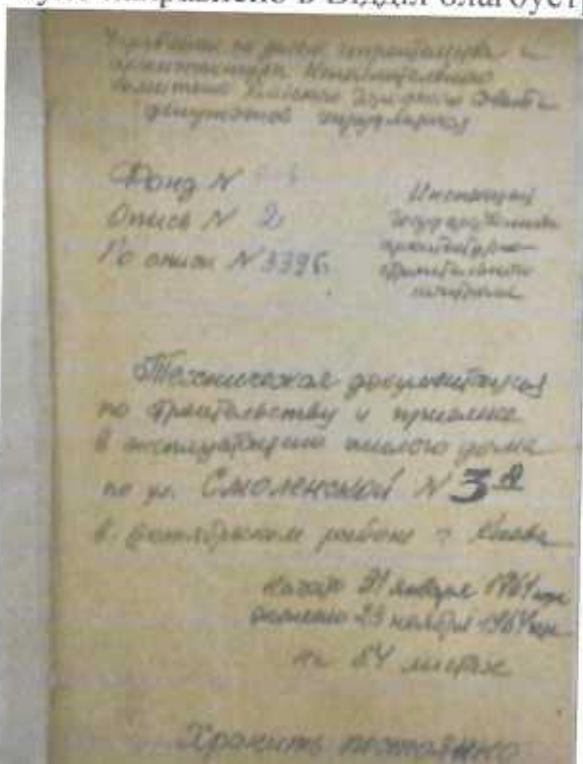 направлено в Відділ благоуст
Управление по делам строительства и
архитектуры Исполнительного
комитета Киевского Городского Совета
депутатов трудящихся
Фонд №
Опись № 2
По описи № 3396
Инспекция
Государственного
архитектурно-
строительного
контроля
Техническая документация
по строительству и приемке
в эксплуатацию жилого дома
по ул. Смоленской № 3а
в Октябрьском районе г. Киева
Начато 21 января 1964 года
окончено 23 ноября 1964 года
на 54 листах
Хранить постоянно